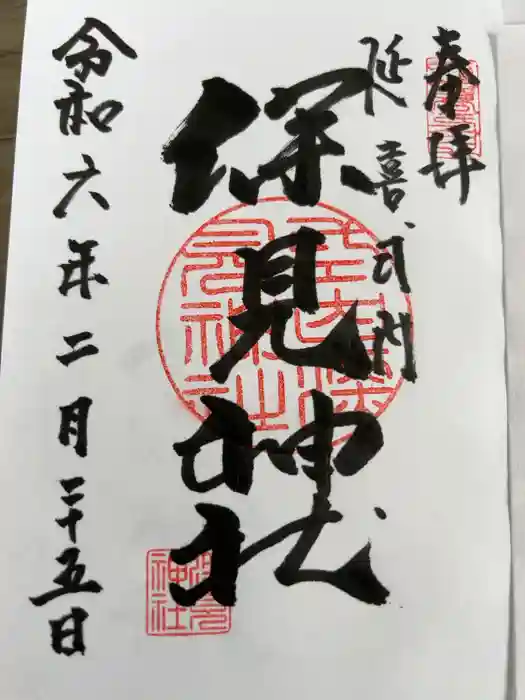 奉拝
延喜式内
深見神社
令和六年二月二十五日
深見
神社